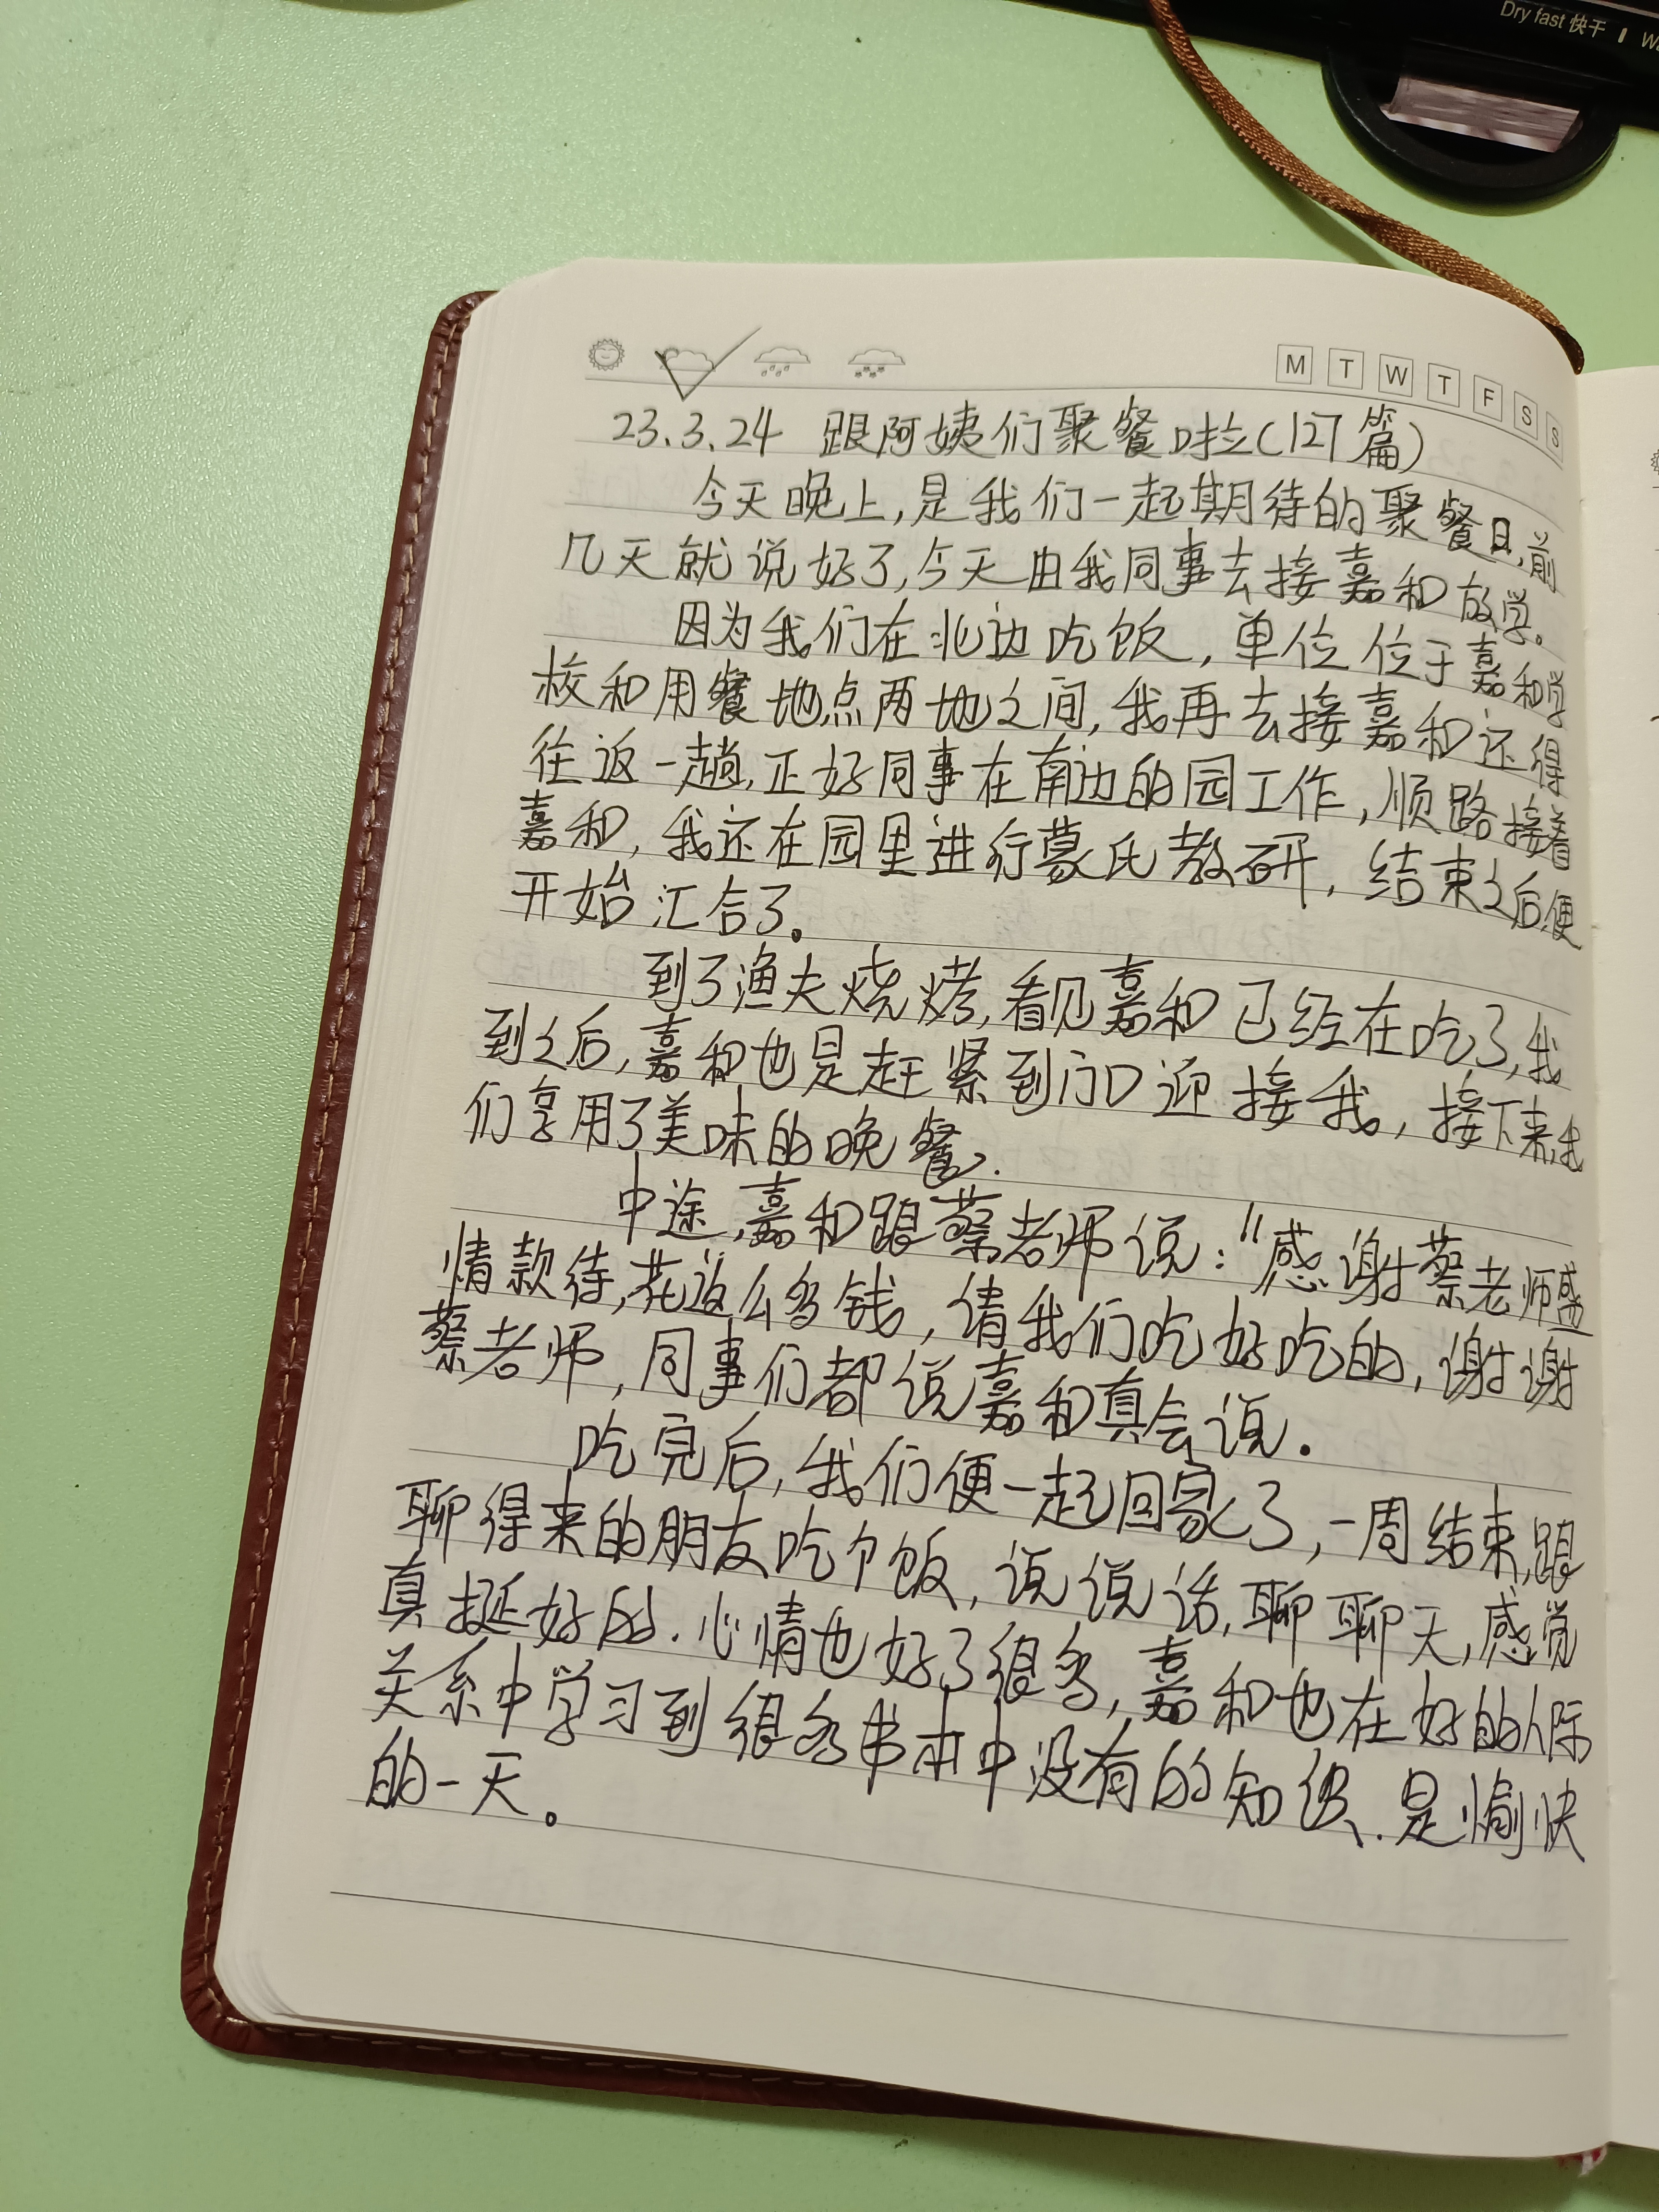 Dry fast 快干
M T W T F S S
23.3.24 跟阿姨们聚餐啦(127篇)
今天晚上,是我们一起期待的聚餐日,前
几天就说好了,今天由我同事去接嘉和放学。
因为我们在北边吃饭,单位位于嘉和学
校和用餐地点两地之间,我再去接嘉和还得
往返一趟,正好同事在南边的园工作,顺路接着
嘉和,我还在园里进行蒙氏教研,结束之后,便
开始汇合了。
到了渔夫烧烤,看见嘉和已经在吃了,我
到之后,嘉和也是赶紧到门口迎接我,接下来,我
们享用了美味的晚餐.
中途,嘉和跟蔡老师说:"感谢蔡老师盛
情款待,花这么多钱,请我们吃好吃的,谢谢
蔡老师,同事们都说嘉和真会说.
吃完后,我们便一起回家了,一周结束,跟
聊得来的朋友吃个饭,说说话,聊聊天,感觉
真挺好的.心情也好了很多,嘉和也在好的人际
关系中学习到很多书本中没有的知识.是愉快
的一天。